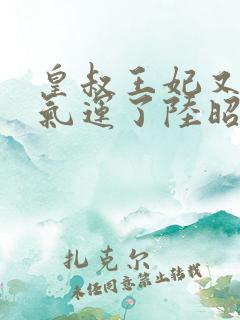 皇叔王妃又
氣運了陸昭
扎克尔
未经同意禁止转载